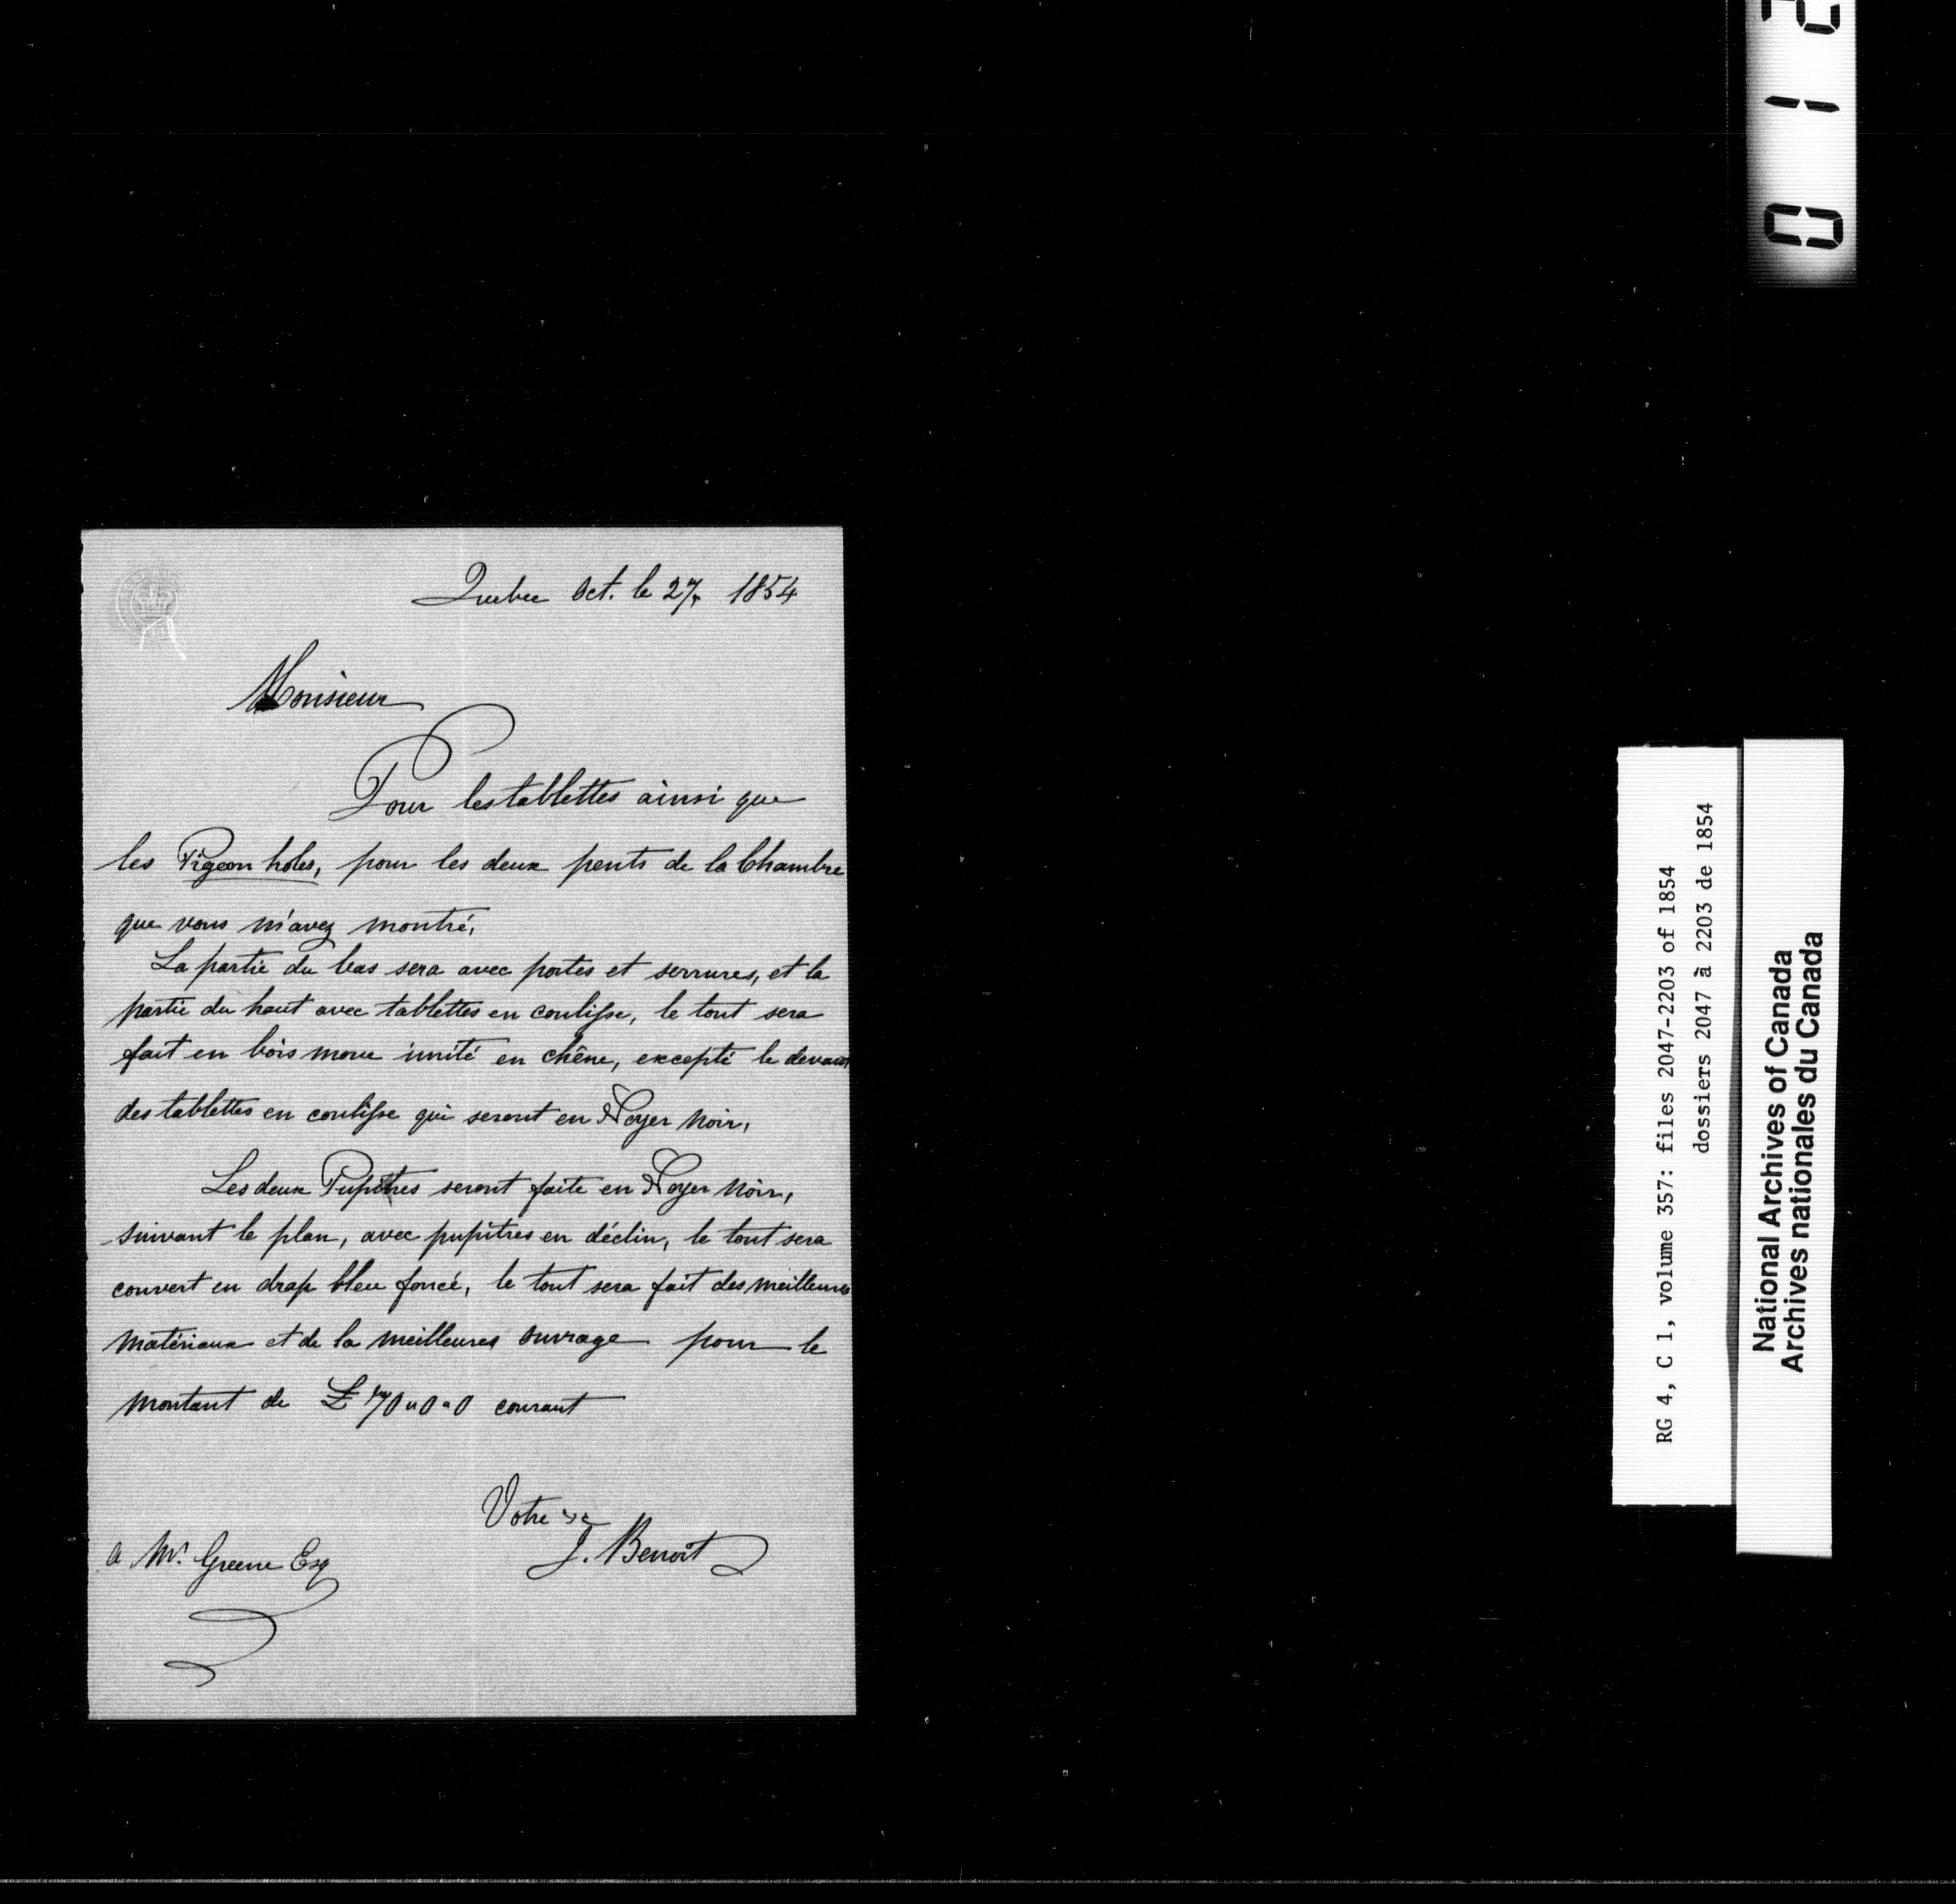 Quebec Oct. le 27, 1854
Monsieur
Pour les tablettes ainsi que
les Pigeon holes, pour les deux pents de la Chambre
que vous m'avez montré,
La partie du bas sera avec portes et serrures, et la
partie du haut avec tablettes en coulisse, le tout sera
fait en bois moue imité en chêne, excepté le devant
des tablettes en coulisse qui seront en Noyer Noir,
Les deux Pupitres seront faite en Noyer Noir,
suivant le plan, avec pupitres en déclin, le tout sera
couvert en drap bleu foncé, le tout sera fait des meilleures
Matériaux et de la meilleures ouvrage pour le
Montant de £ 70 " 0 " 0 courant
Votre &c
J. Benoit
a Mr. Greene Esq
0 1 2
RG 4, C 1, volume 357: files 2047-2203 of 1854
dossiers 2047 à 2203 de 1854
National Archives of Canada
Archives nationales du Canada